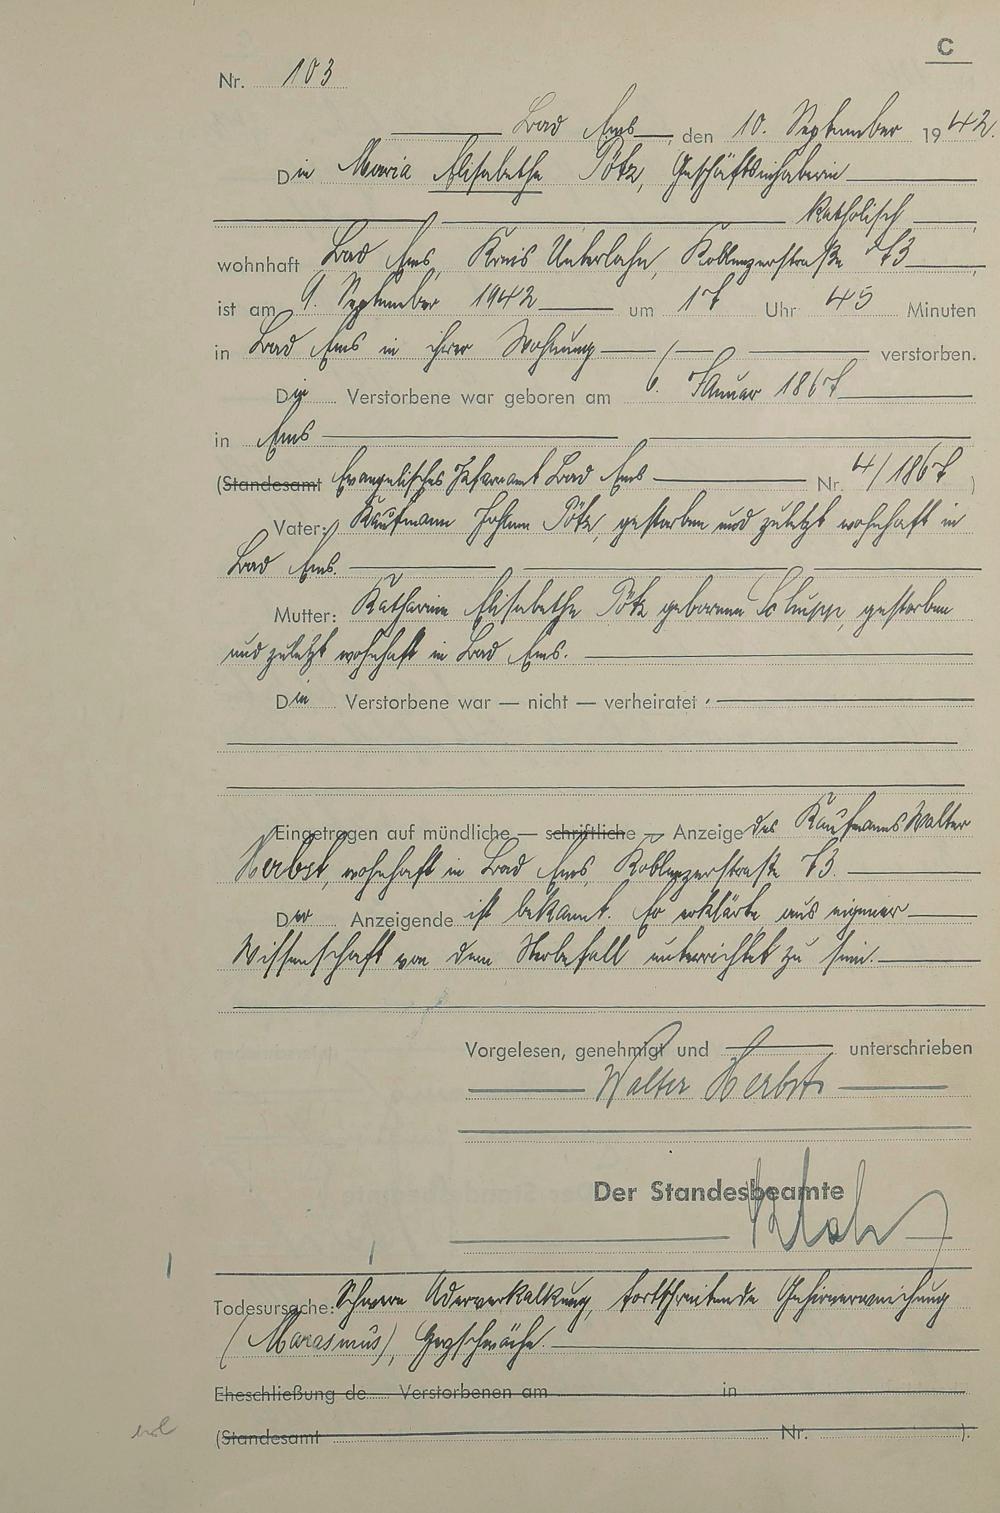 C
Nr. 103
Bad Ems, den 10. September 1942.
Die Maria Elisabetha Pötz, Geschäftsinhaberin
katholisch
wohnhaft Bad Ems, Kreis Unterlahn, Koblenzerstraße 73
ist am 9. September 1942 um 17 Uhr 45 Minuten
in Bad Ems in ihrer Wohnung verstorben.
Die Verstorbene war geboren am 6. Januar 1867
in Ems
(Standesamt Evangelisches Pfarramt Bad Ems Nr. 4/1867)
Vater: Kaufmann Pötz, gestorben und zuletzt wohnhaft in
Bad Ems.
Mutter: Katharina Elisabetha Pötz geborene Schupp, gestorben
und zuletzt wohnhaft in Bad Ems.
Die Verstorbene war — nicht — verheiratet.
Eingetragen auf mündliche — schriftliche — Anzeige des Kaufmanns Walter
Herbst, wohnhaft in Bad Ems, Koblenzerstraße 73.
Der Anzeigende ist bekannt. Er erklärte aus eigener
Wissenschaft von dem Sterbefall unterrichtet zu sein.
Vorgelesen, genehmigt und unterschrieben
Walter Herbst
Der Standesbeamte
Todesursache: Schwere Aderverkalkung, fortschreitende Gehirnerweichung
(Marasmus), Herzschwäche.
Eheschließung de Verstorbenen am in
(Standesamt Nr. ).